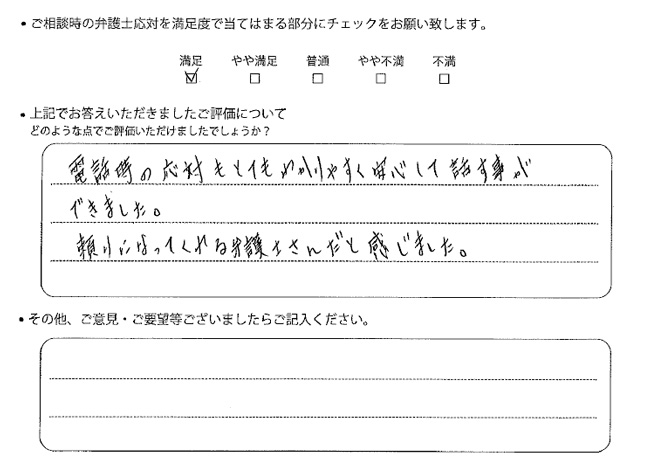 ・ご相談時の弁護士応対を満足度で当てはまる部分にチェックをお願い致します。
満足 やや満足 普通 やや不満 不満
☑ □ □ □ □
・上記でお答えいただきましたご評価について
どのような点でご評価いただけましたでしょうか？
電話時の応対もとてもわかりやすく安心して話す事が
できました。
頼りになってくれる弁護士さんだと感じました。
・その他、ご意見・ご要望等ございましたらご記入ください。